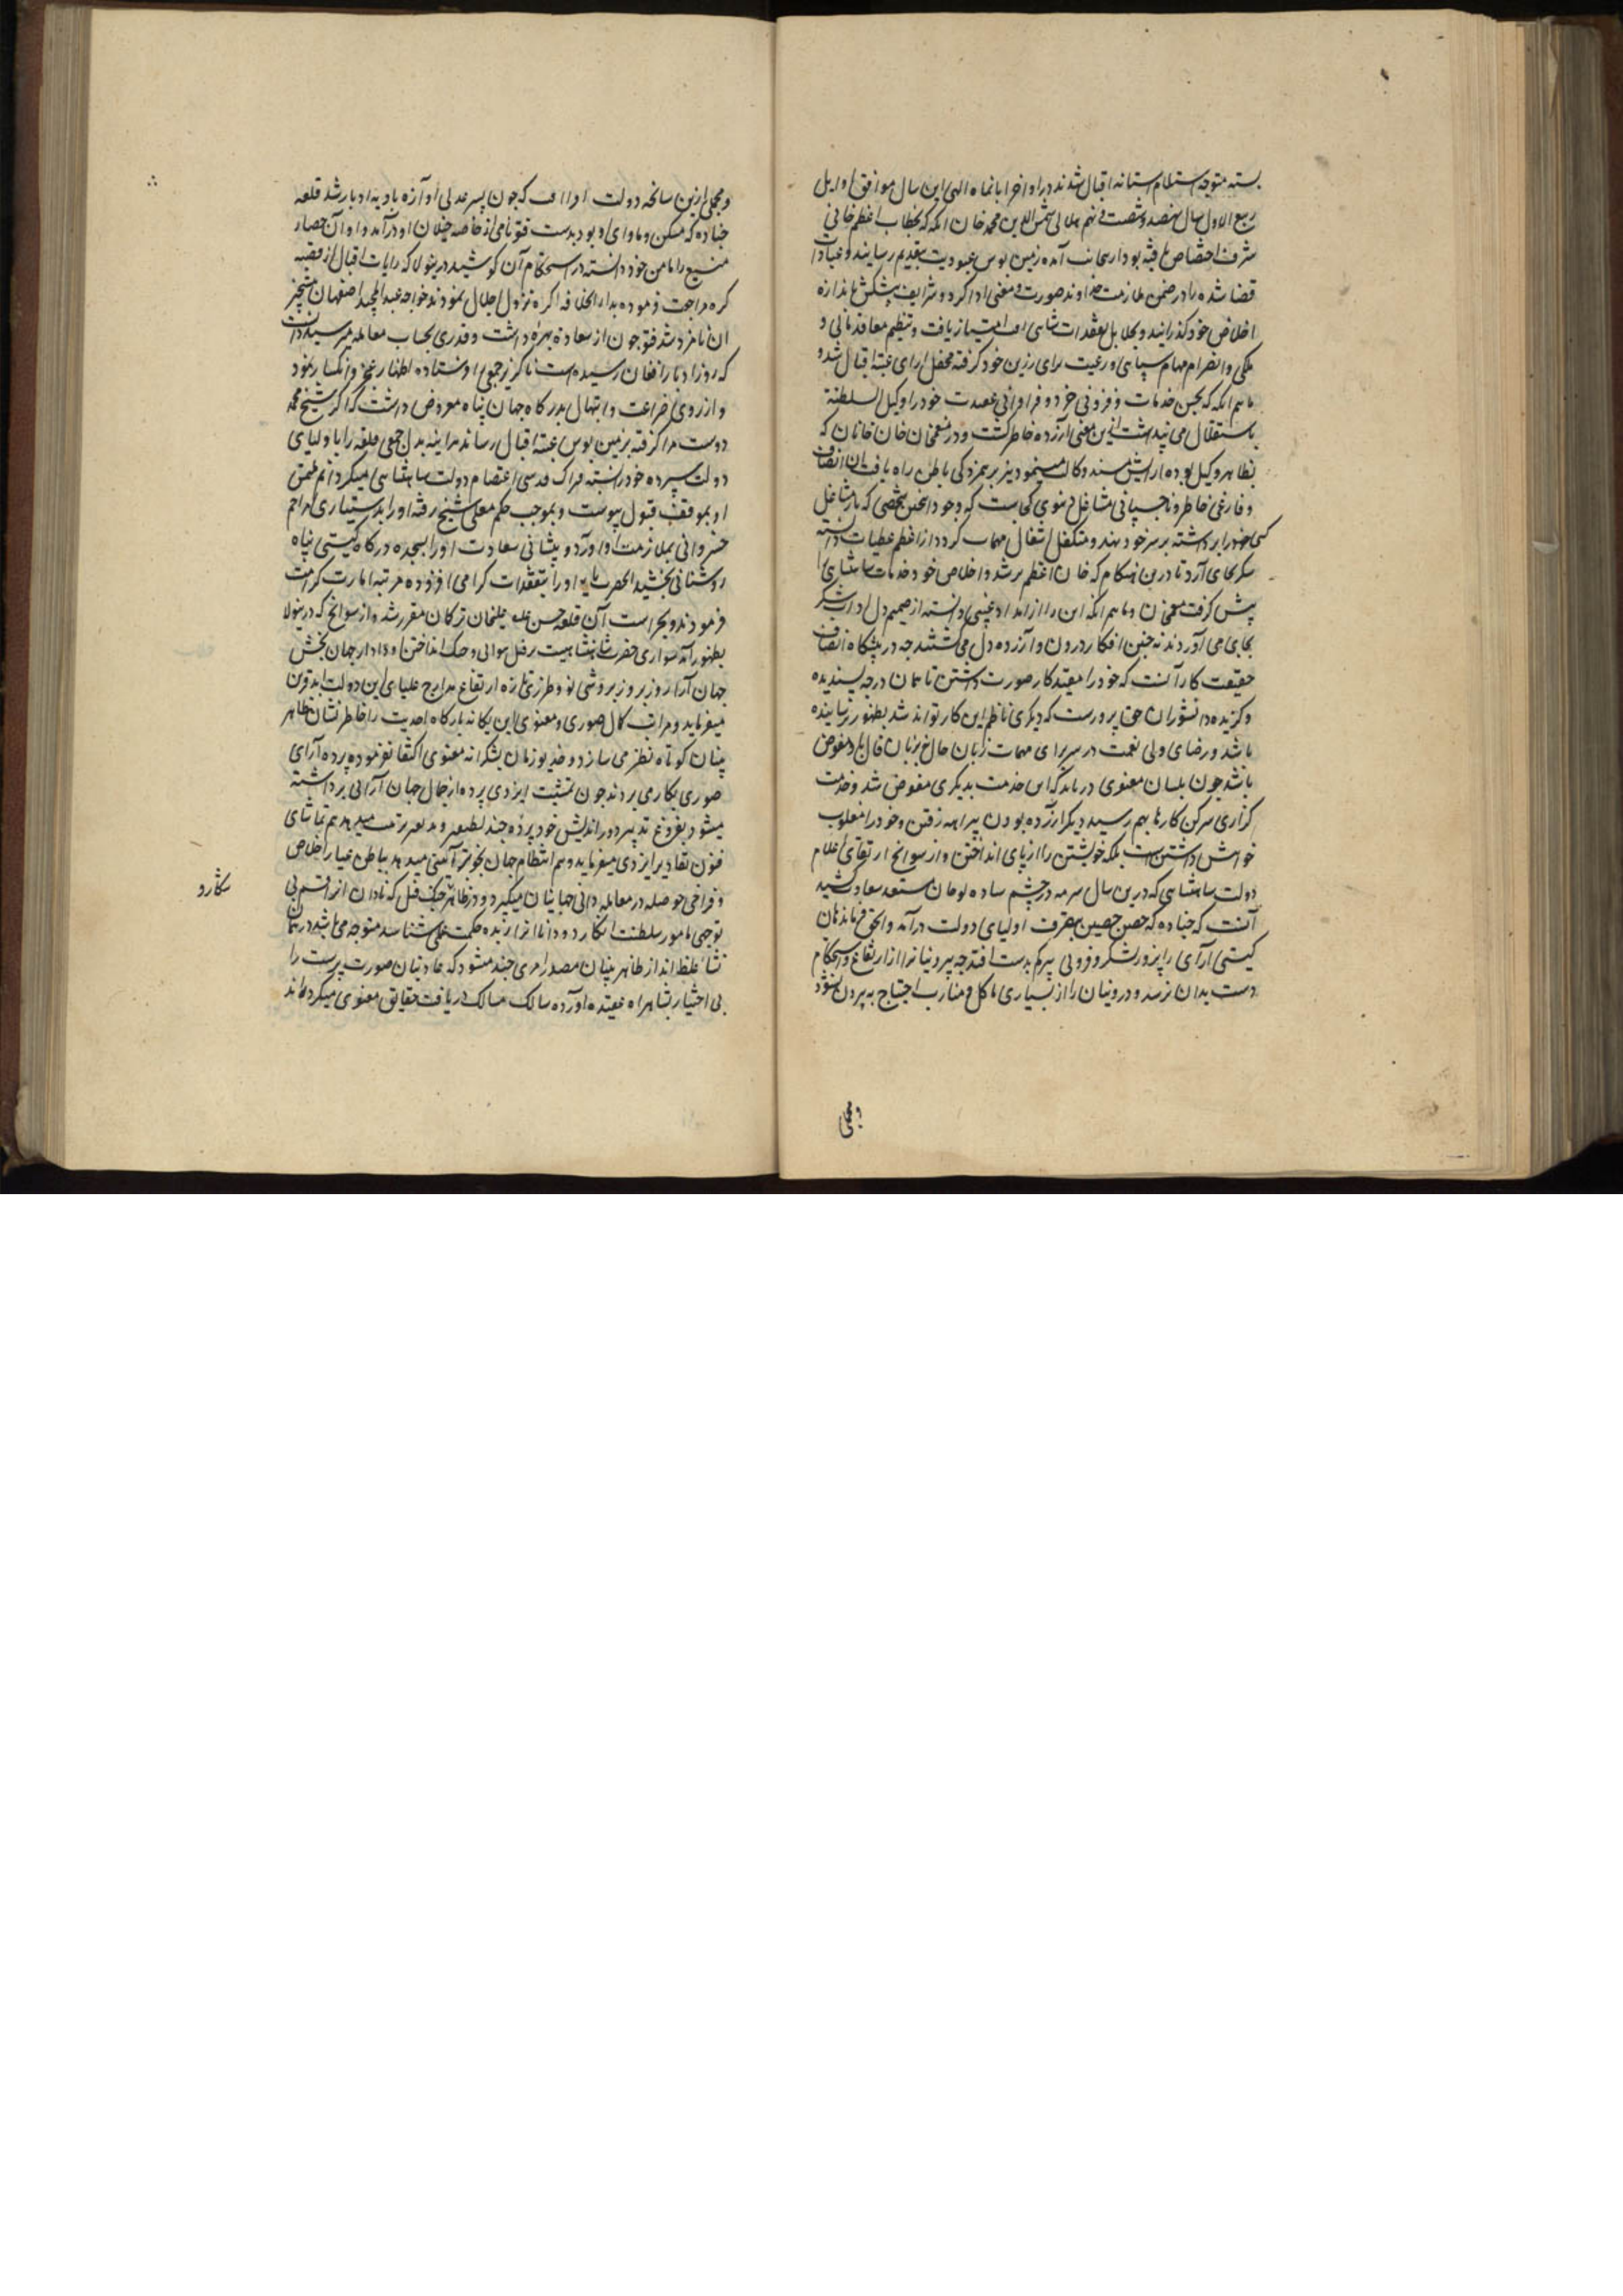 بسته متوجه استلام آستانه اقبال شدند در اواخر ابانماه الهی این سال موافق اوایل
ربیع الاول سال نهصد و شصت و نهم هلالی شمس الدین محمد خان اتکه که بخطاب اعظم خانی
شرف اختصاص یافته بود از پنجاب آمده زمین بوس عبودیت بتقدیم رسانید و عبادات
قضا شده را در ضمن ملازمت خداوند صورت و معنی ادا کرد و شرایف پیشکش باندازه
اخلاص خود کذرانید و بجلایل تفقدات شاهی امتیاز یافت و تنظیم معاقد مالی و
ملکی و انصرام مهام سپاهی و رعیت برای رزین خود کرفته محفل ارای عتبه اقبال شد و
ماهم انکه که بحسن خدمات و فزونی خرد و فراوانی عقیدت خود را وکیل السلطنة
باستقلال می پنداشت ازین معنی آزرده خاطر کشت و در منعم خان خان خانان که
بظاهر وکیل بوده ارایش مسند وکالت مینمود نیز برهمزدکی باطن راه یافت انصاف
و فارغی خاطر و ناچسپانی مشاغل دنیوی کجاست که وجود اینچنین شخصی که بار مشاغل
کسی خود را برداشته بر سر خود نهد و متکفل اشغال مهمات کردد از اعظم عطیات دانسته
شکر بجای آرد تا درین هنکام که خان اعظم مرشد و اخلاص خود خدمات شاهنشاهی را
پیش کرفت منعم خان و ماهم انکه این را از امداد غیبی دانسته از صمیم دل اداب شکر
بجای می آوردند نه چنین افکار درون و آزرده دل می کشتند چه در پیشکاه انصاف
حقیقت کار آنست که خود را مقید کار صورت داشتن تا همان درجه پسندیده
و کزیده دانشوران حق پرورست که دیکری ناظم این کار نتواند شد بظهور نرسانیده
باشد و رضای ولی نعمت در سربرای مهمات بزبان حال و بزبان قال باو مفوض
باشد چون بلسان معنوی دریابد که این خدمت بدیکری مفوض شد و خدمت
کزاری سرکن کارها بهم رسید دیکر ازرده بودن بیراهه رفتن و خود را مغلوب
خواهش داشتن است بلکه خویشتن را از پای انداختن و از سوانح ارتقای اعلام
دولت شاهنشاهی که درین سال سرمه در چشم ساده لوحان مستعد سعادت کشید
آنست که چناده که حصن حصین بتصرف اولیای دولت درآمد و الحق فرماندهان
کیتی آرای را بزور لشکر و فزونی پرکم بدست افتد چه بیرونیانرا از ارتفاع و استحکام
دست بدان نرسد و درونیان را از بسیاری ماکل و مشارب احتیاج به بیرون نشود
و مجملی
و مجملی ازین سانحه دولت افزا آنکه چون پسر عدلی آوازه بادیه ادبار شد قلعه
چناده که مسکن و ماوای او بود بدست فتو نامی از خاصه خیلان او درآمد و او آن حصار
منیع را مامن خود دانسته در استحکام آن کوشید درینولا که رایات اقبال از قصبه
کره مراجعت فرموده بدار الخلافه اکره نزول اجلال نمودند خواجه عبد المجید اصفهان بتسخیر
ان نامزد شد فتو چون از سعادة بهرهٔ داشت و قدری بحساب معامله میرسید دانست
که روز ادبار افغان رسیده است ناکزیر جمعی را فرستاده اظهار عجز و انکسار نمود
و از روی ضراعت و ابتهال بدرکاه جهان پناه معروض داشت که اکر شیخ محمد
دوست مرا کرفته بزمین بوس عتبه اقبال رساند هراینه بدل جمعی قلعه را باولیای
دولت سپرده خود را بسته فتراک قدسی اعتصام دولت شاهنشاهی میکردانم ملتمس
او بموقف قبول پیوست و بموجب حکم معلی شیخ رفته او را بدستیاری مراحم
خسروانی بملازمت آورد و پیشانی سعادت او را بسجده درکاه کیتی پناه
روشنائی بخشید انحضرت پایه او را بتفقدات کرامی افزوده مرتبه امارت کرامت
فرمودند و بحراست آن قلعه حسن علی خان ترکمان مقرر شد و از سوانح که درینولا
بظهور آمد سواری حضرت شاهنشاهیست بر فیل هوائی و جنک انداختن او دادار جهان بخش
جهان آرا روز بروز بروشی نو و طرزی تازه ارتفاع مدارج علیای این دولت ابد قرین
میفرماید و مراتب کمال صوری و معنوی این یکانه بارکاه احدیت را خاطر نشان ظاهر
بینان کوتاه نظر می سازد و خدیو زمان بشکرانه معنوی اکتفا نفرموده پرده آرای
صوری بکار می بردند چون بمشیت ایزدی پرده از جمال جهان آرائی برداشته
میشود بفروغ تدبیر دوراندیش خود پردهٔ چند لطیف تر ترتیب میدهد هم تماشای
فنون تقادیر ایزدی میفرماید و هم انتظام جهان بخوبتر آئینی میدهد بباطن عیار اخلاص
و فراخی حوصله در معامله دانی جهانیان میکیرد و در ظاهر بجنک فیل که نادان انرا قسم بی
توجهی بامور سلطنت انکارد و دانا انرا زبده حکمت عملی شناسد متوجه می باشد در همان
نشاء غلط انداز ظاهر بینان مصدر امری چند میشود که عادتیان صورت پرست را
بی اختیار بشاهراه عقیده آورده سالک مسالک دریافت حقایق معنوی میکرداند